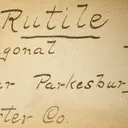 Rutile
agonal
er Parkesbur
ter Co.